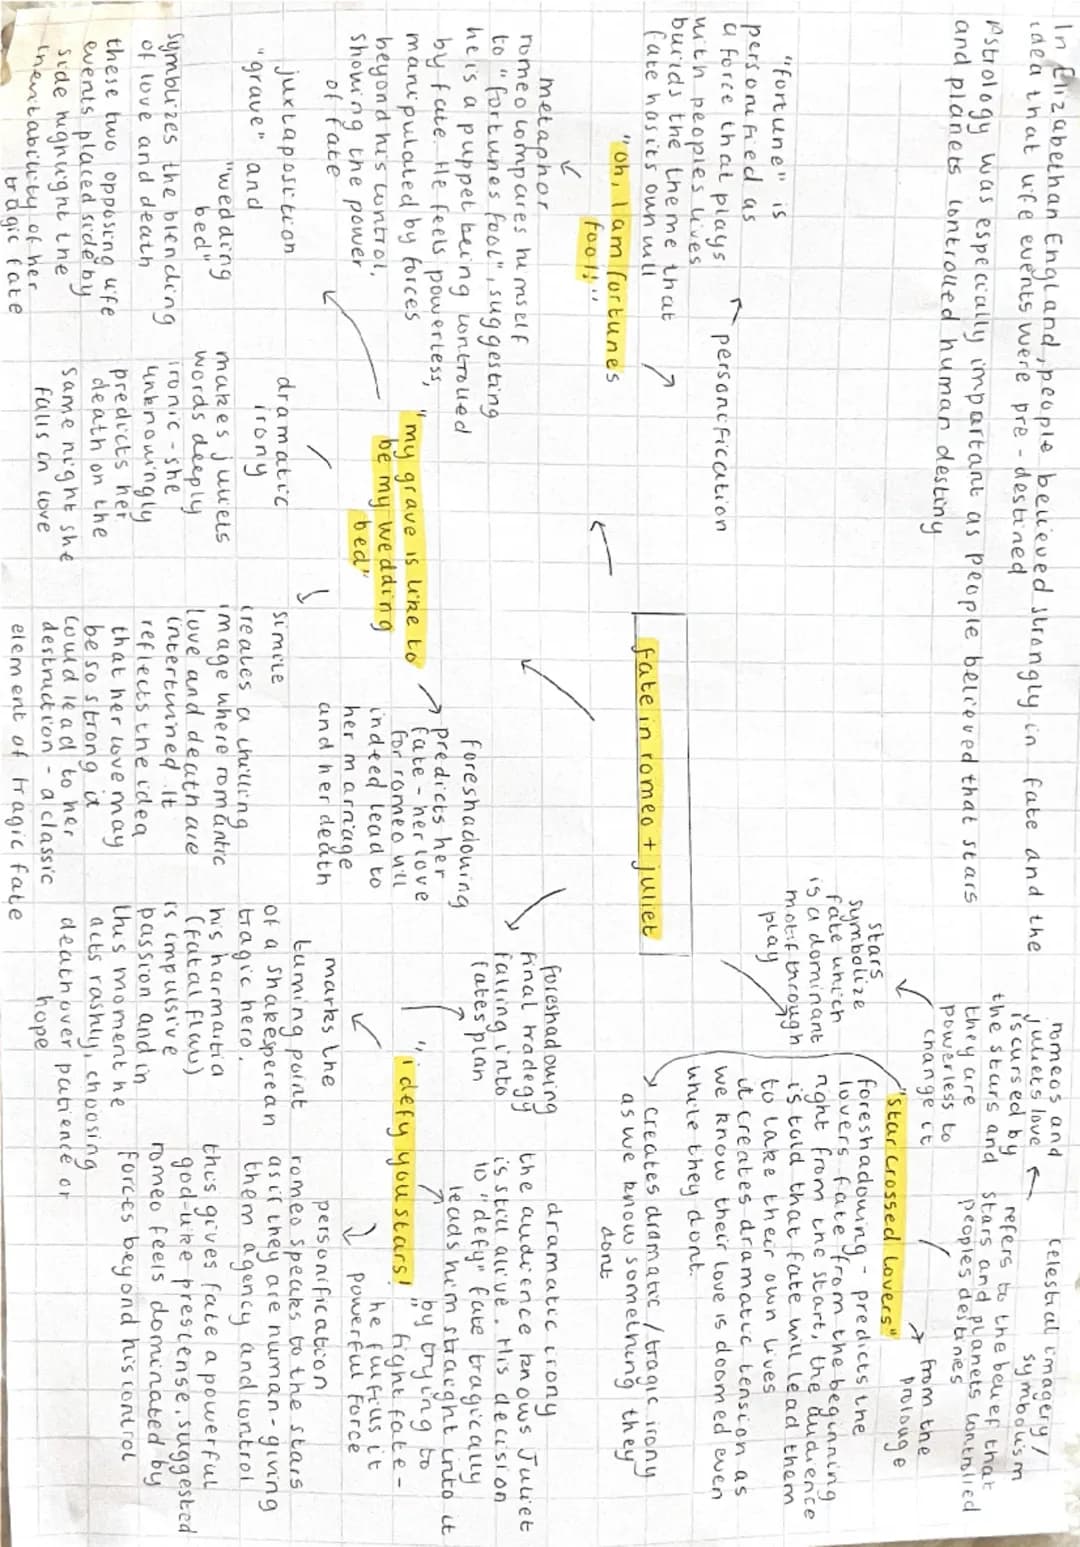 In Elizabethan England, people believed strongly in fate and the
idea that life events were pre-destined
Astrology was especially important as people believed that stars
and planets controlled human destiny
romeos and
juliets love
is cursed by
the stars and
they are
powerless to
change it
celestial imagery/
symbolism
refers to the belief that
stars and planets controlled
peoples destinies
stars
symbolize
fate which
is a dominant
motif through
play
"star crossed lovers"
from the
prolouge
foreshadowing - predicts the
lovers fate from the beginning
right from the start, the audience
is told that fate will lead them
to take their own lives
it creates dramatic tension as
we know their love is doomed even
while they dont.
creates dramatic/tragic irony
as we know something they
dont
"fortune" is
personified as
a force that plays
with peoples lives
builds the theme that
fate has its own will
personification
"oh, I am fortunes
fool!"
fate in romeo + juliet
metaphor
romeo compares himself
to "fortunes fool", suggesting
he is a puppet being controlled
by fate. He feels powerless,
manipulated by forces
beyond his control,
showing the power
of fate
"my grave is like to
be my wedding
bed"
foreshadowing
predicts her
fate - her love
for romeo will
indeed lead to
her marriage
and her death
juxtaposition
"grave" and
"wedding
bed"
symbolizes the blending
of love and death
these two opposing life
events placed side by
side highlight the
inevitability of her
tragic fate
dramatic
irony
makes juliets
words deeply
ironic - she
unknowingly
predicts her
death on the
same night she
falls in love
simile
creates a chilling
image where romantic
love and death are
intertwined. It
reflects the idea
that her love may
be so strong it
could lead to her
destruction - a classic
element of tragic fate
foreshadowing
final tradegy
falling into
fates plan
"i defy you stars!"
dramatic irony
the audience knows Juliet
is still alive. His decision
to "defy" fate tragically
leads him straight into it
by trying to
fight fate -
he fulfills it
powerful force
marks the
turning point
of a shakesperean
tragic hero.
his harmartia
(fatal flaw)
is impulsive
passion and in
this moment he
acts rashly, choosing
death over patience or
hope
personification
romeo speaks to the stars
as if they are human - giving
them agency and control
this gives fate a powerful
god-like prescense, suggested
romeo feels dominated by
forces beyond his control